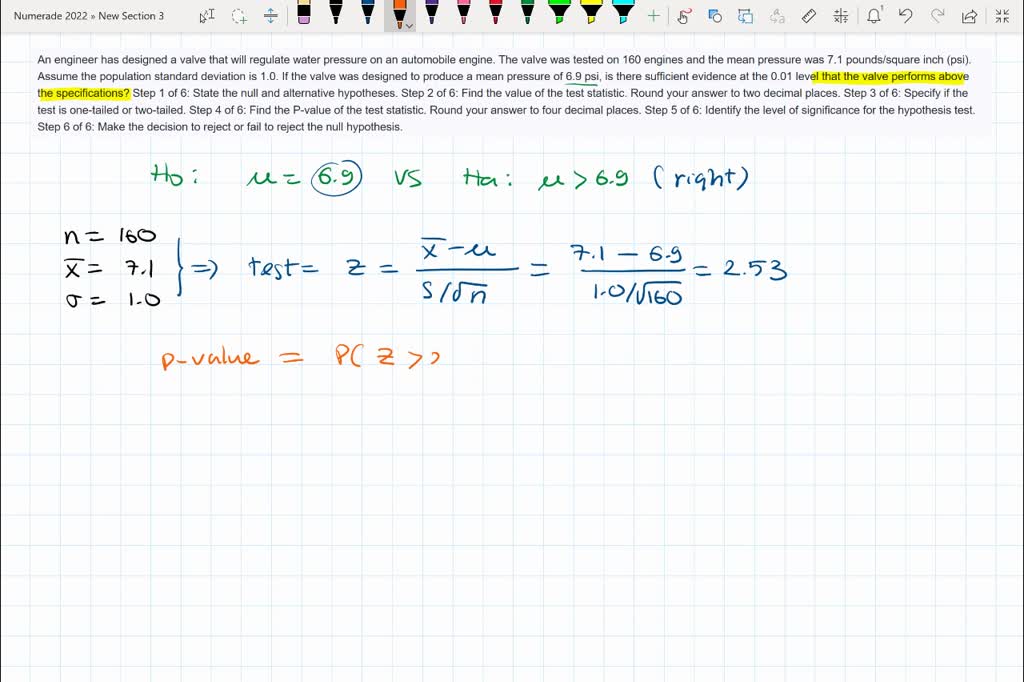 Numerade 2022 » New Section 3
An engineer has designed a valve that will regulate water pressure on an automobile engine. The valve was tested on 160 engines and the mean pressure was 7.1 pounds/square inch (psi).
Assume the population standard deviation is 1.0. If the valve was designed to produce a mean pressure of 6.9 psi, is there sufficient evidence at the 0.01 level that the valve performs above
the specifications? Step 1 of 6: State the null and alternative hypotheses. Step 2 of 6: Find the value of the test statistic. Round your answer to two decimal places. Step 3 of 6: Specify if the
test is one-tailed or two-tailed. Step 4 of 6: Find the P-value of the test statistic. Round your answer to four decimal places. Step 5 of 6: Identify the level of significance for the hypothesis test.
Step 6 of 6: Make the decision to reject or fail to reject the null hypothesis.
Ho: μ = 6.9 vs Ha: μ > 6.9 (right)
n = 160
x̄ = 7.1
σ = 1.0
} ⇒ test = z = (x̄ - μ) / (S/√n) = (7.1 - 6.9) / (1.0/√160) = 2.53
p-value = P( Z >